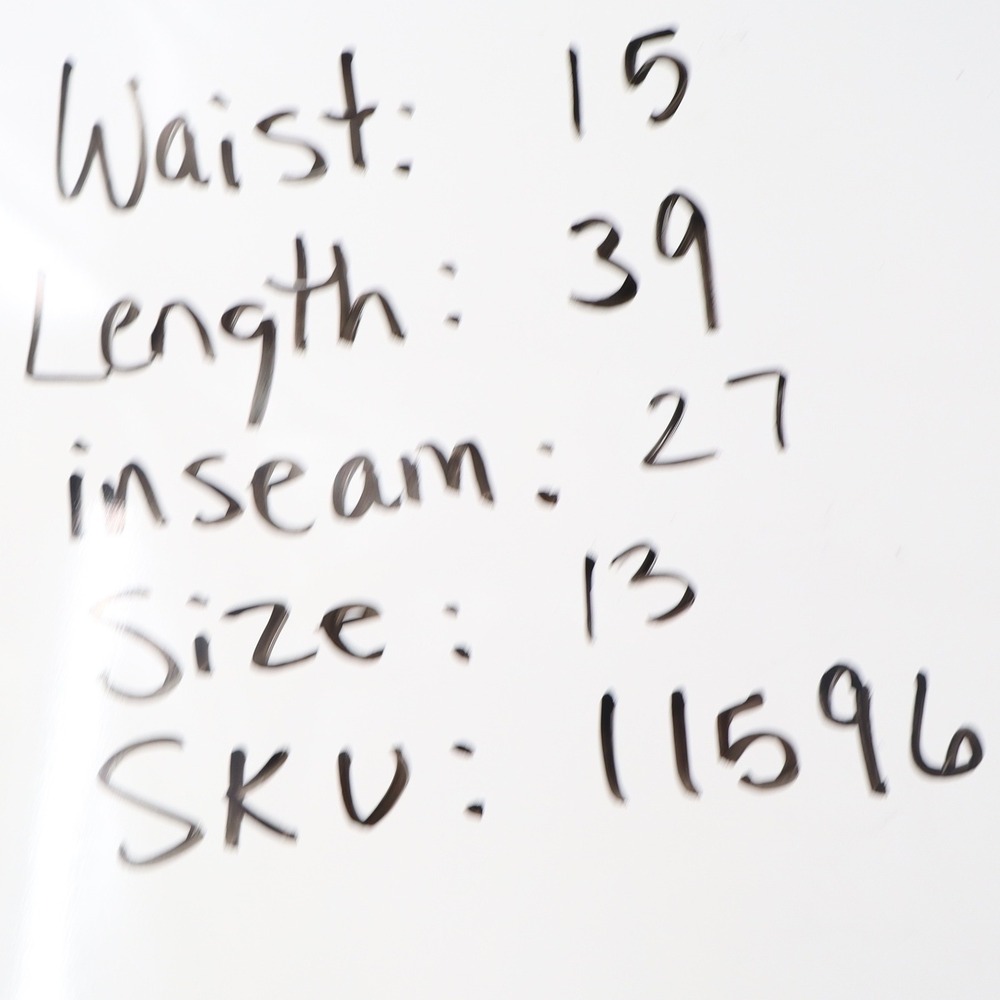 Waist: 15
Length: 39
inseam: 27
Size: 13
SKU: 11596